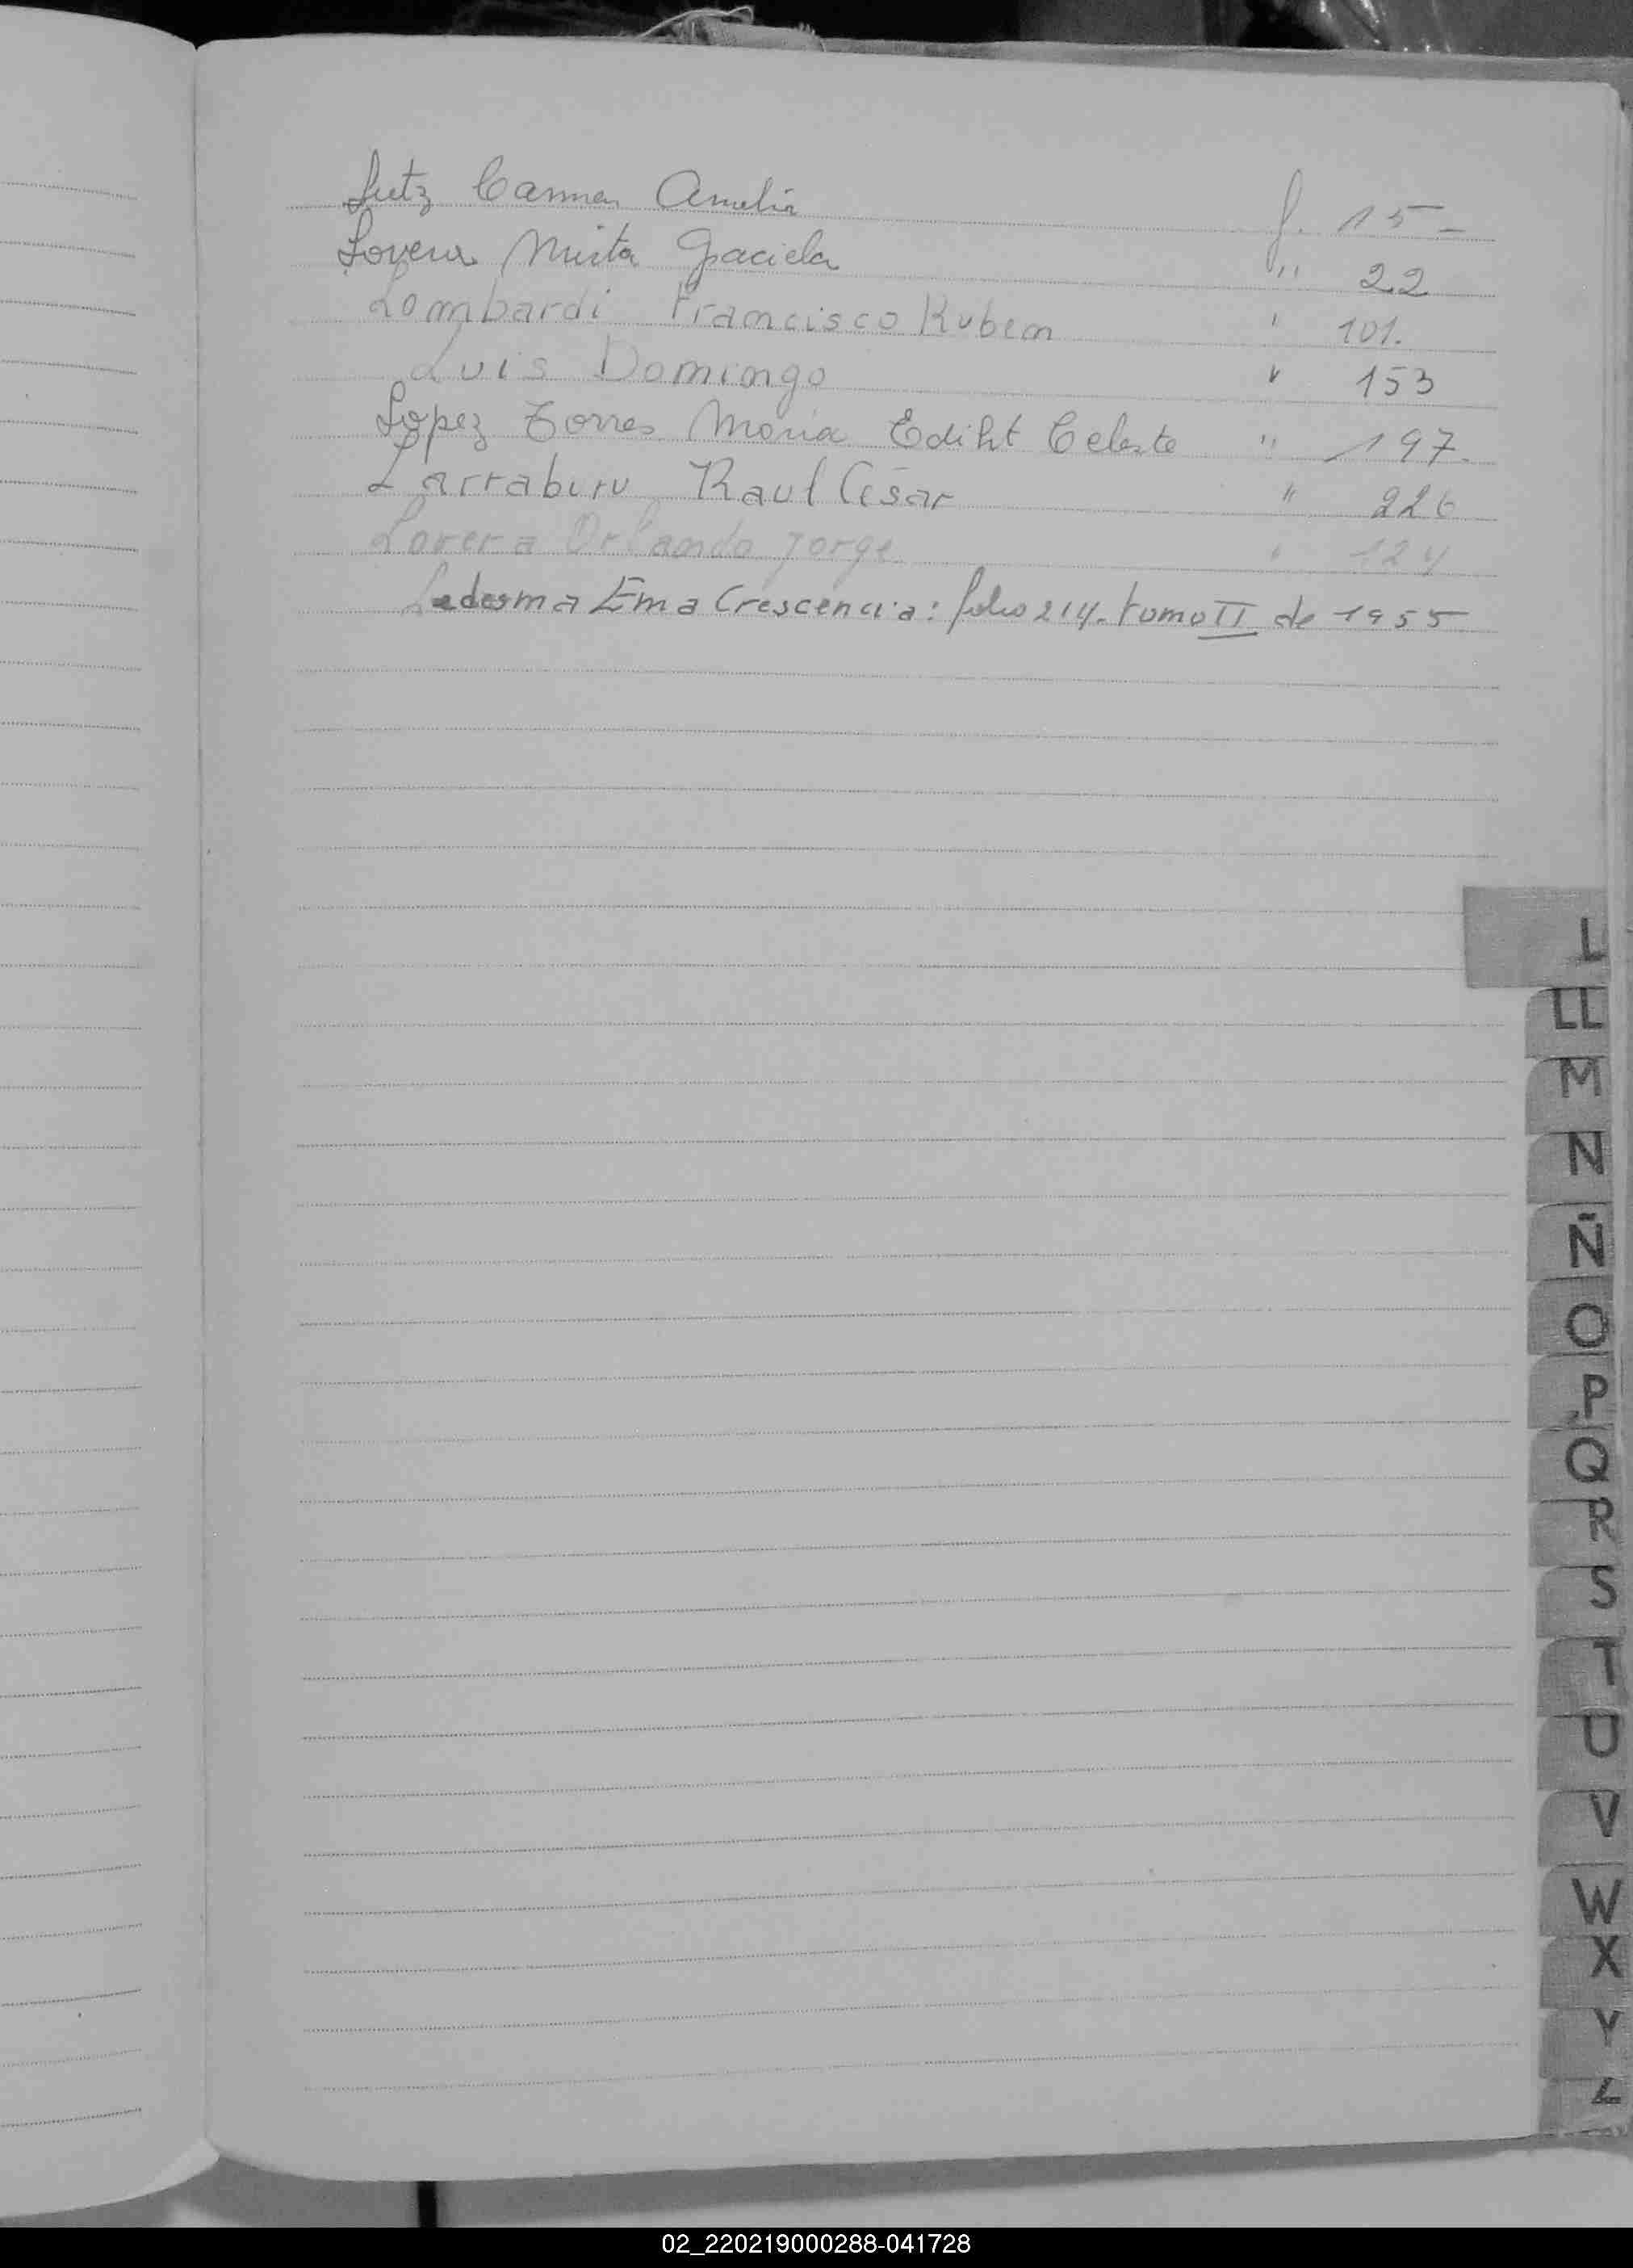 Lutz Carmen Amelia f. 15-
Lovera Mirta Graciela " 22
Lombardi Francisco Ruben " 101.
Luis Domingo " 153
Lopez Torres Maria Ediht Celeste " 197.
Larraburu Raul César " 226
Lovera Orlando Jorge " 124
Ledesma Ema Crescencia: folio 214. tomo II de 1955
L
LL
M
N
Ñ
O
P
Q
R
S
T
U
V
W
X
Y
Z
02_220219000288-041728